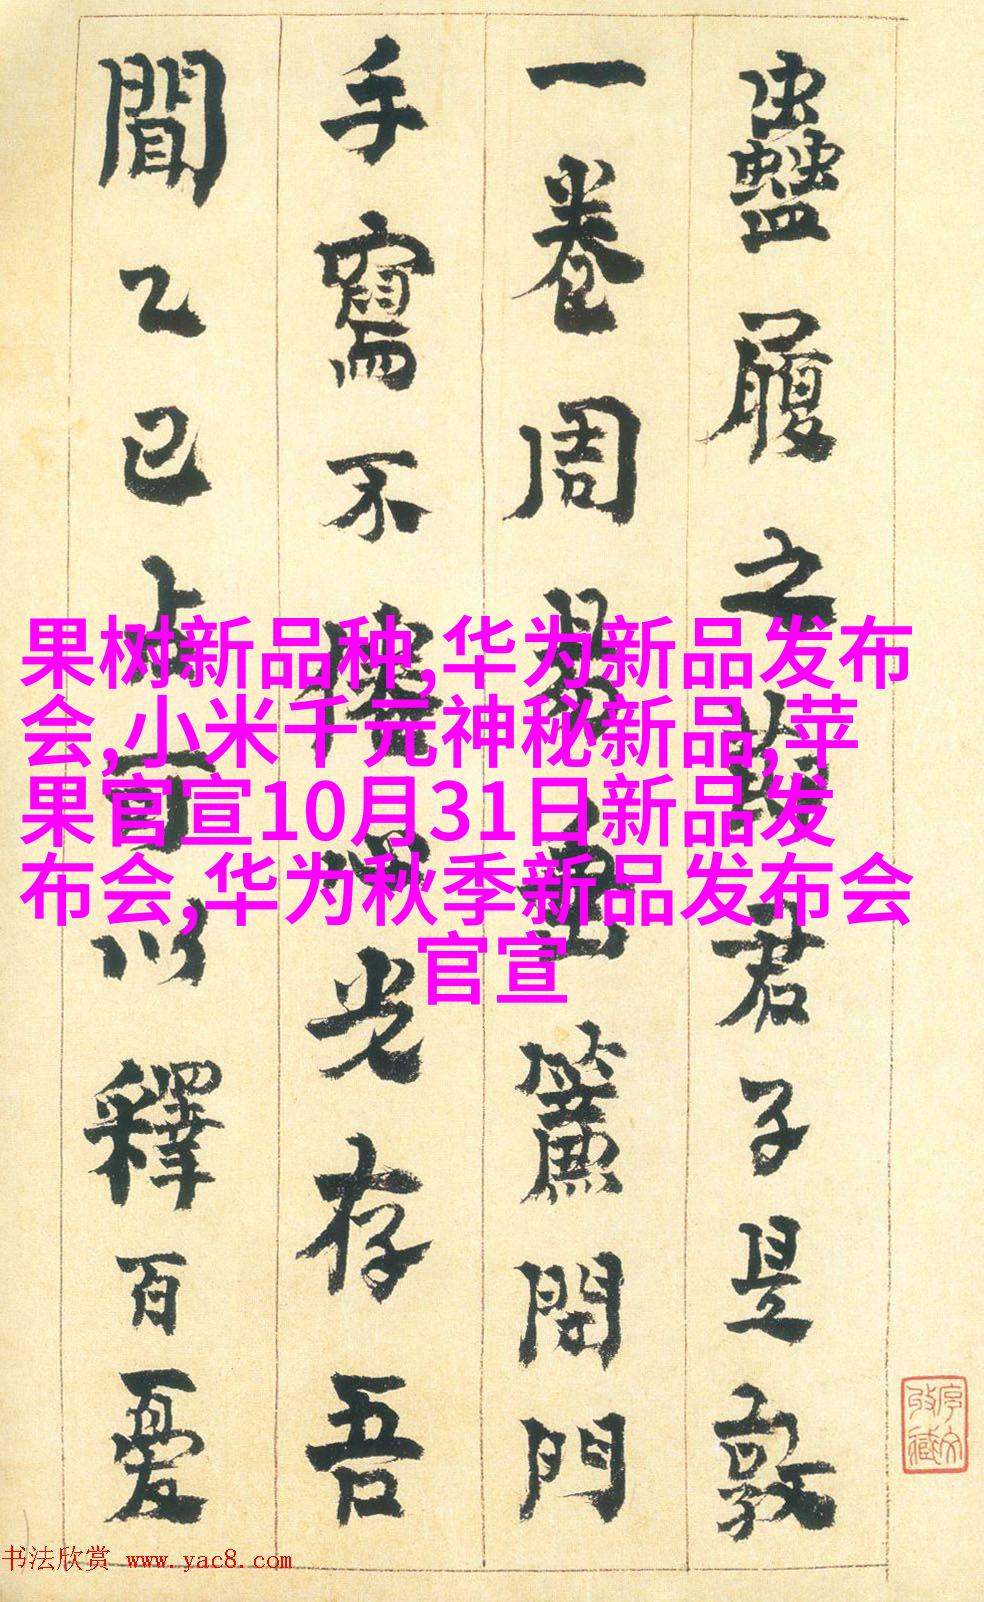 蠱履之君子是敦
一卷周易垂簾閉門
手寫不光存吾
聞乙巳占可以釋百憂
果树新品种,华为新品发布
会,小米千元神秘新品,苹
果官宣10月31日新品发
布会,华为秋季新品发布会
官宣
书法欣赏 www.yac8.com